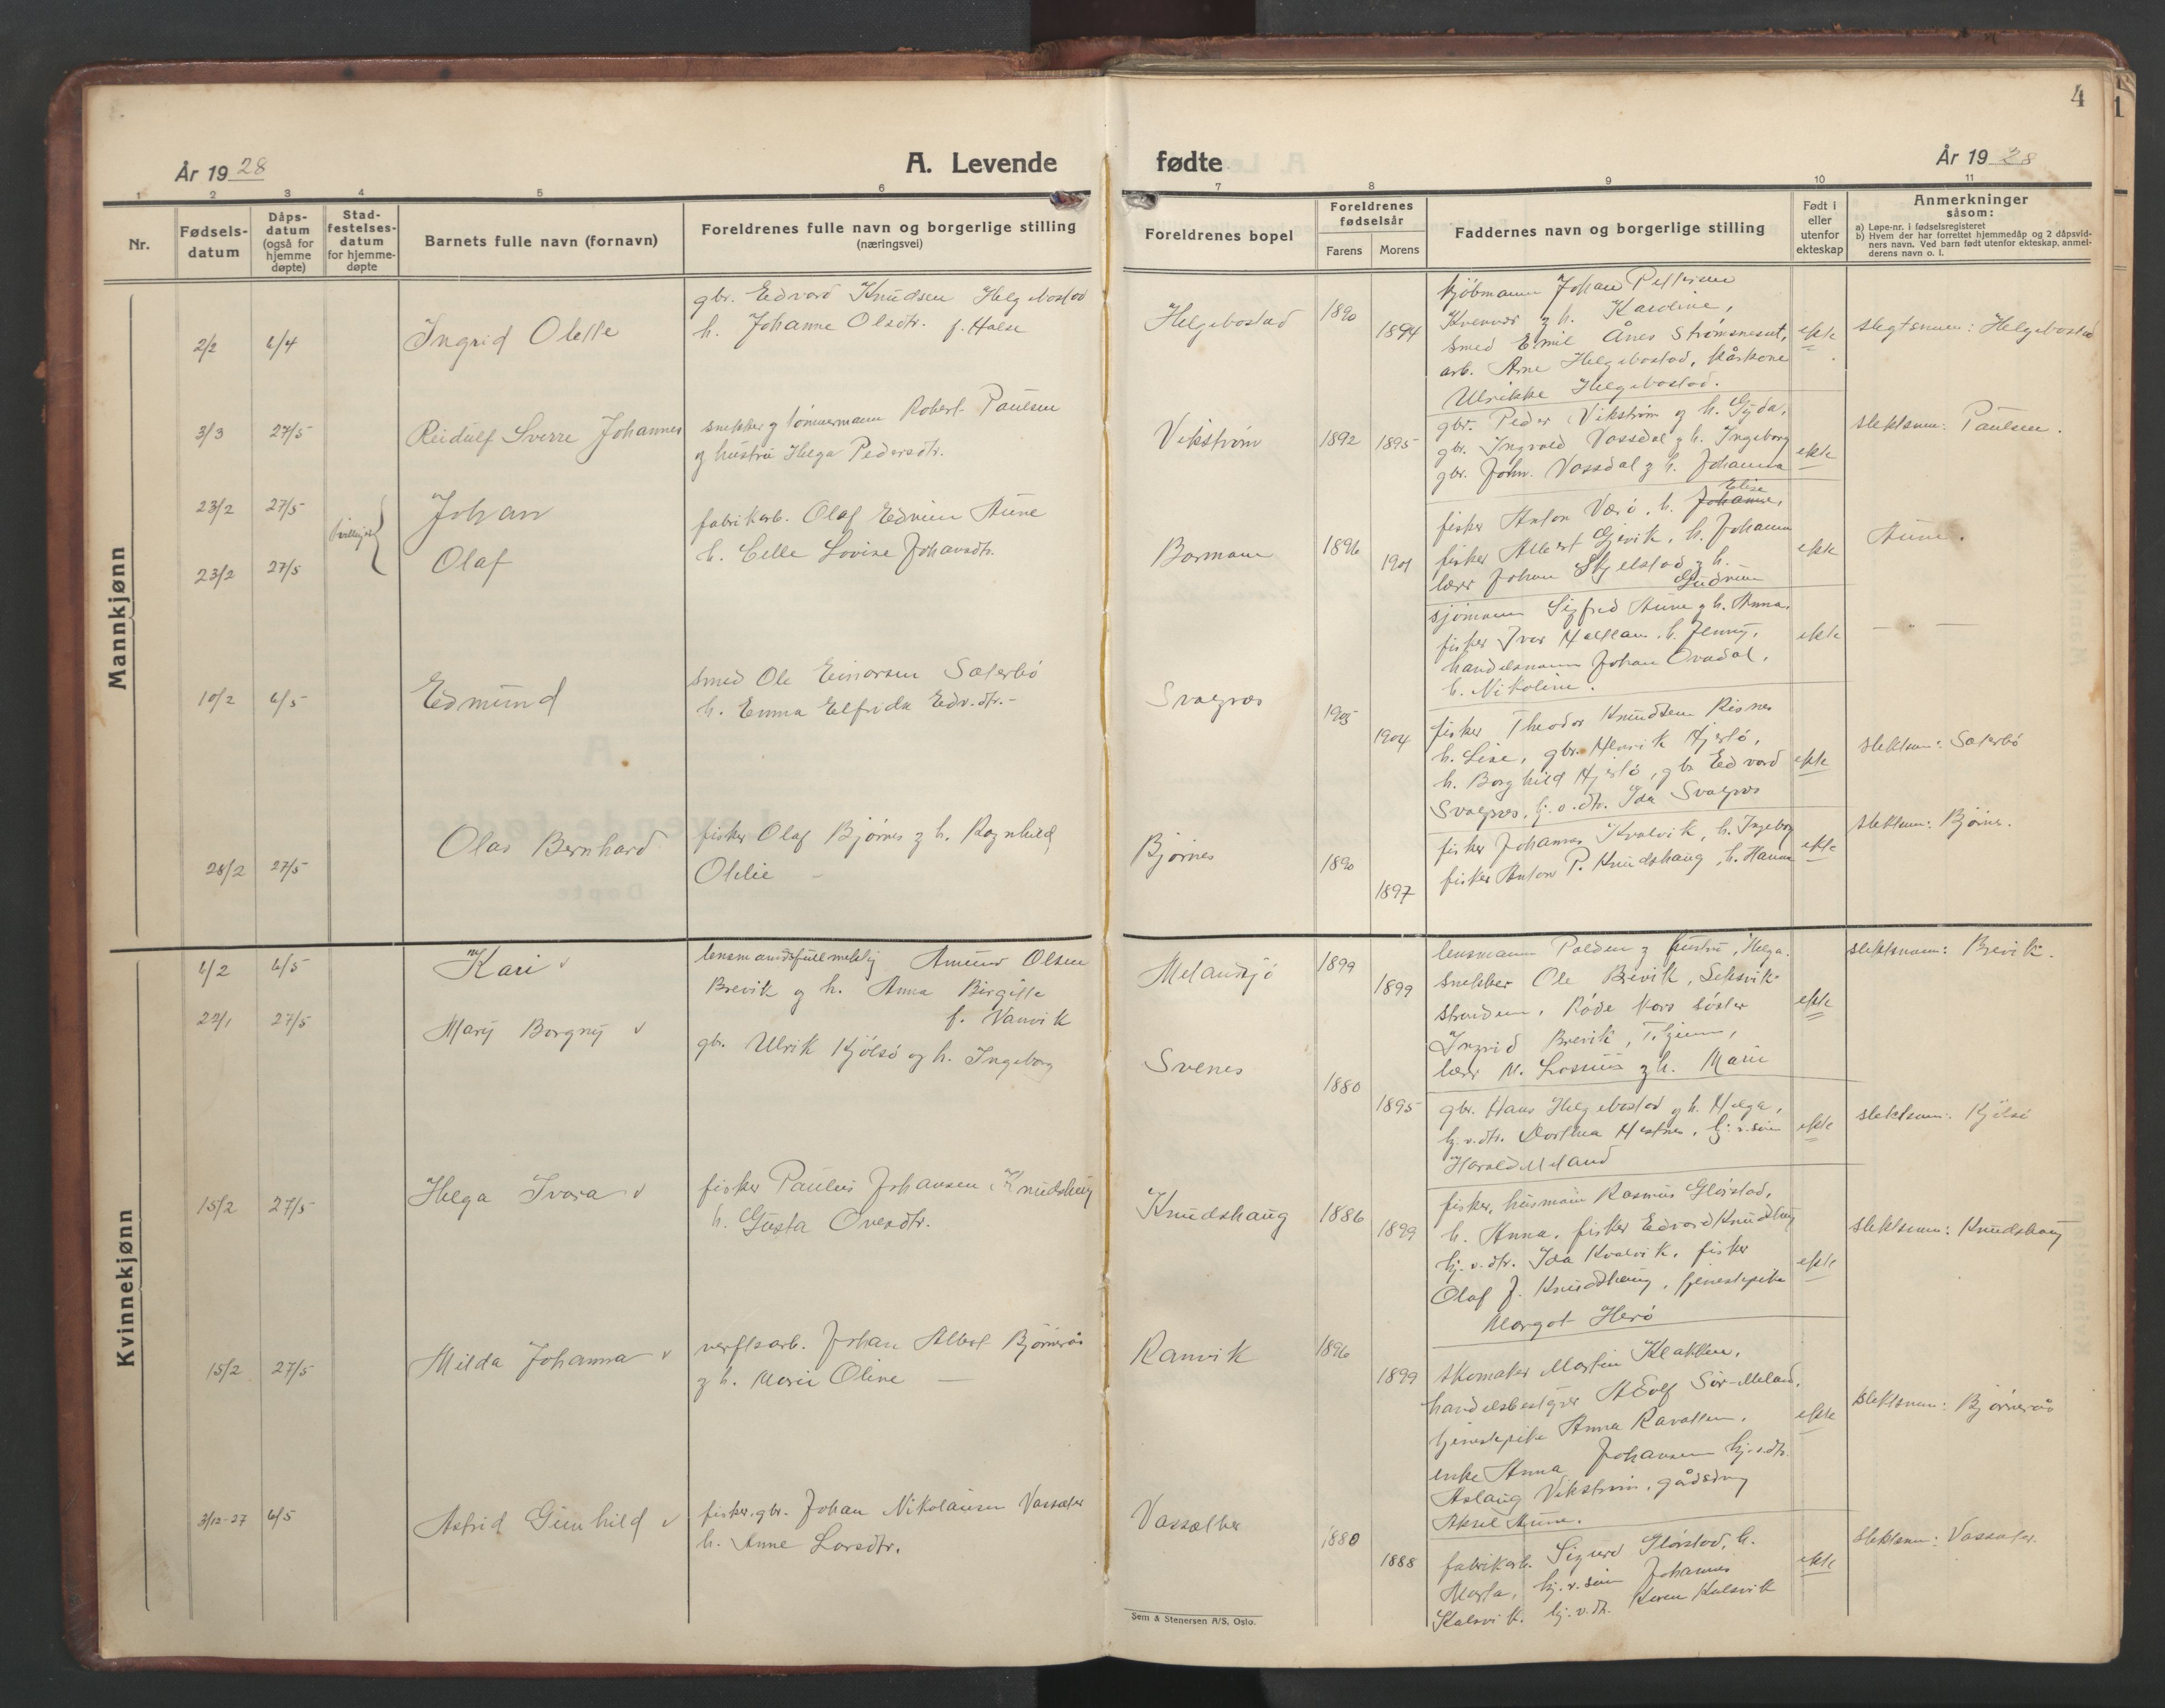 4
År 1928
A. Levende fødte
År 1928
1 2 3 4 5 6 7 8 9 10 11
Nr.
Fødsels-datum
Dåps-datum (også for hjemme døpte)
Stad-festelses-datum for hjemme-døpte
Barnets fulle navn (fornavn)
Foreldrenes fulle navn og borgerlige stilling (næringsvei)
Foreldrenes bopel
Foreldrenes fødselsår
Farens Morens
Faddernes navn og borgerlige stilling
Født i eller utenfor ekteskap
Anmerkninger såsom:
a) Løpe-nr. i fødselsregisteret
b) Hvem der har forrettet hjemmedåp og 2 dåpsvid-
ners navn. Ved barn født utenfor ekteskap, anmel-
derens navn o. l.
Mannkjønn
2/2 6/4 Ingrid Olette
gbr. Edvard Knudsen Helgebostad
h. Johanne Olsdtr. f. Halse
Helgebostad 1890 1894
kjøbmann Johan Pettersen
Kvenvær g h. Karoline,
smed Emil Ånes Strømsneset,
arb. Arne Helgebostad, kårkone
Ulrikke Helgebostad.
ekte
slegtsnavn: Helgebostad
3/3 27/5 Reidulf Sverre Johannes
snekker g tömmermann Robert Paulsen
g hustru Helga Pedersdtr.
Vikstrøm 1892 1895
gbr. Peder Vikstrøm og h. Gyda,
gbr. Ingvald Vassdal g h. Ingeborg
gbr. John Vassdal g h. Johanna
ekte
slektsnavn: Paulsen.
23/2 27/5 Johan
23/2 27/5 Olaf
tvillinger
fabrikarb. Olaf Edvin Aune
h. Lovise Johansdtr.
Bormann 1896 1901
fisker Anton Værø, h. Johanne, Elise
fisker Albert Gjevik, h. Johanna
lærer Johan Skjelstad g h.
Gudrun
ekte
Aune.
sjömann Sigfred Aune g h. Anna,
fisker Iver h. Jenny,
handelsmann Johan Ovedal,
h. Nikoline.
ekte
— " —
10/2 6/5 Edmund
smed Ole Einarsen Sæterbö
h. Emma Elfrida Edv.dtr.-
Svægvæs 1905 1904
fisker Theodor Knudsen Risnes
h. Lise, gbr. Henrik Hjertö,
h. Borghild Hjertö, gbr Edvard
Svægvæs, hj. v. dtr. Ida Svægvæs
ekte
slektsnavn: Sæterbö
28/2 27/5 Olav Bernhard
fisker Olaf Bjørnes g h. Ragnhild
Otelie -
Bjørnes 1890 1897
fisker Johannes Kvalvik, h. Ingeborg
fisker Anton P. Knudshaug, h. Hanna
ekte
slektsnavn: Bjørnes.
Kvinnekjønn
6/2 6/5 Kari v
lensmandsfullmektig Amund Olsen
Brevik g h. Anna Birgitte
f. Vanvik
Melandsjö 1899 1899
lensmann Paldsen g hustru, Helga.
snekker Ole Brevik, Leksvik-
stranden, Röde Kors söster
Ingrid Brevik, Tr.hjem,
lærer M. Losnius g h. Marie
ekte
slektsnavn: Brevik.
22/1 27/5 Mary Borgny v
gbr. Ulrik Kjölsö og h. Ingeborg
Svenes 1880 1895
gbr. Hans Helgebostad g h. Helga,
hj. v. dtr. Dorthea Hestnes, hj. v. sön
Harald Meland
ekte
slektsnavn: Kjölsö
15/2 27/5 Helga Ivara v
fisker Paulus Johansen Knudshaug
h. Gusta Ovesdtr.
Knudshaug 1886 1899
fisker, husmann Rasmus Glörstad,
h. Anna, fisker Edvard Knudshaug
hj. v. dtr. Ida Kvalvik, fisker
Olaf J. Knudshaug, tjenestepike
Margot Herö
ekte
slektsnavn: Knudshaug
15/2 27/5 Milda Johanna v
verftsarb. Johan Albert Bjørnerås
g h. Marie Oline —
Ranvik 1896 1899
skomaker Martin Klakken,
handelsbestyrer Adolf Sör-Meland,
tjenestepike Anna Ravatten,
enke Anna Johansen hj. v. dtr.
Aslaug Vikström, gårdsdreng
Aksel Aune.
ekte
slektsnavn: Bjørnerås
3/12-27 6/5 Astrid Gunhild v
fisker, gbr. Johan Nikolausen Vassæter
h. Anne Larsdtr.
Vassæther 1880 1888
fabrikarb. Sigurd Glörstad, h.
Marta, hj. v. sön Johannes
Kalsvik, hj. v. dtr. Karen Kalsvik
ekte
slektsnavn: Vassæter.
Sem & Stenersen A/S, Oslo.